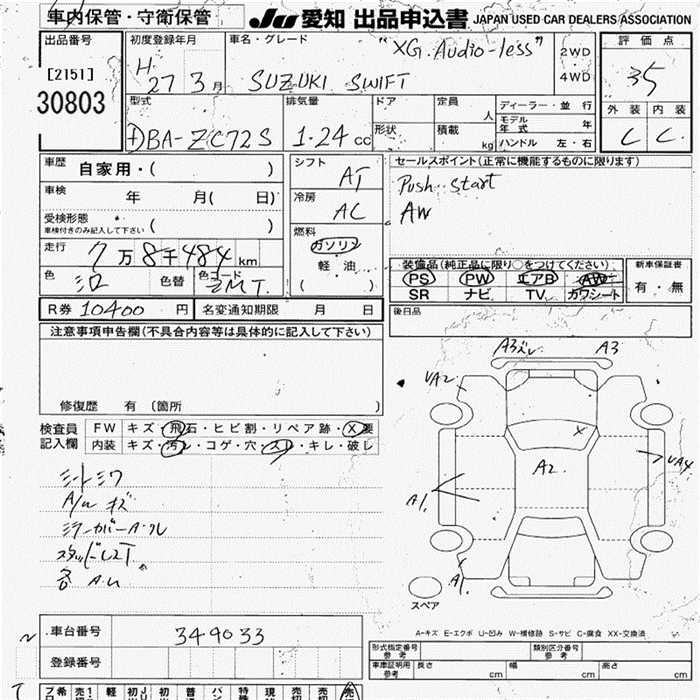 車内保管・守衛保管
JU 愛知 出品申込書 JAPAN USED CAR DEALERS ASSOCIATION
出品番号 初度登録年月 車名・グレード "XG. Audio-less" 2WD 評価点
[2151] H 27 3月 SUZUKI SWIFT 4WD 3.5
30803 外装 内装
型式 排気量 ドア 定員 人 ディーラー・並行
DBA-ZC72S 1.24cc 形状 積載 kg モデル年式 年 C C
ハンドル 左・右
車歴 自家用・( ) シフト AT セールスポイント(正常に機能するものに限ります)
車検 年 月( 日) 冷房 AC Push start
受検形態 ( ) AW
車検付きのみ記入して下さい
燃料 ガソリン
走行 7万8千484km 軽・油 装備品(純正品に限り○をつけてください) 新車保証書
色 色替 色コード ZMT. ( ) PS PW エアB AW 有・無
SR ナビ TV カワシート
R券 10400 円 名変通知期限 月 日 後日品
注意事項申告欄(不具合内容等は具体的に記入して下さい)
A3ズレ A3
UA2
修復歴 有 〔箇所 〕
検査員 FW キズ・飛石・ヒビ割・リペア跡・X要
記入欄 内装 キズ・汚レ・コゲ・穴・スレ・キレ・破レ
X
A2.
UA4
A1.
シートシワ
A/W キズ
ミラーカバーA・ル
各 A.U
A1
スペア
A-キズ E-エクボ U-凹み W-補修跡 S-サビ C-腐食 XX-交換済
車台番号 349033
登録番号
型式指定番号 参考 類別区分番号 参考
車庫証明用 参考 長さ cm 幅 cm 高さ cm